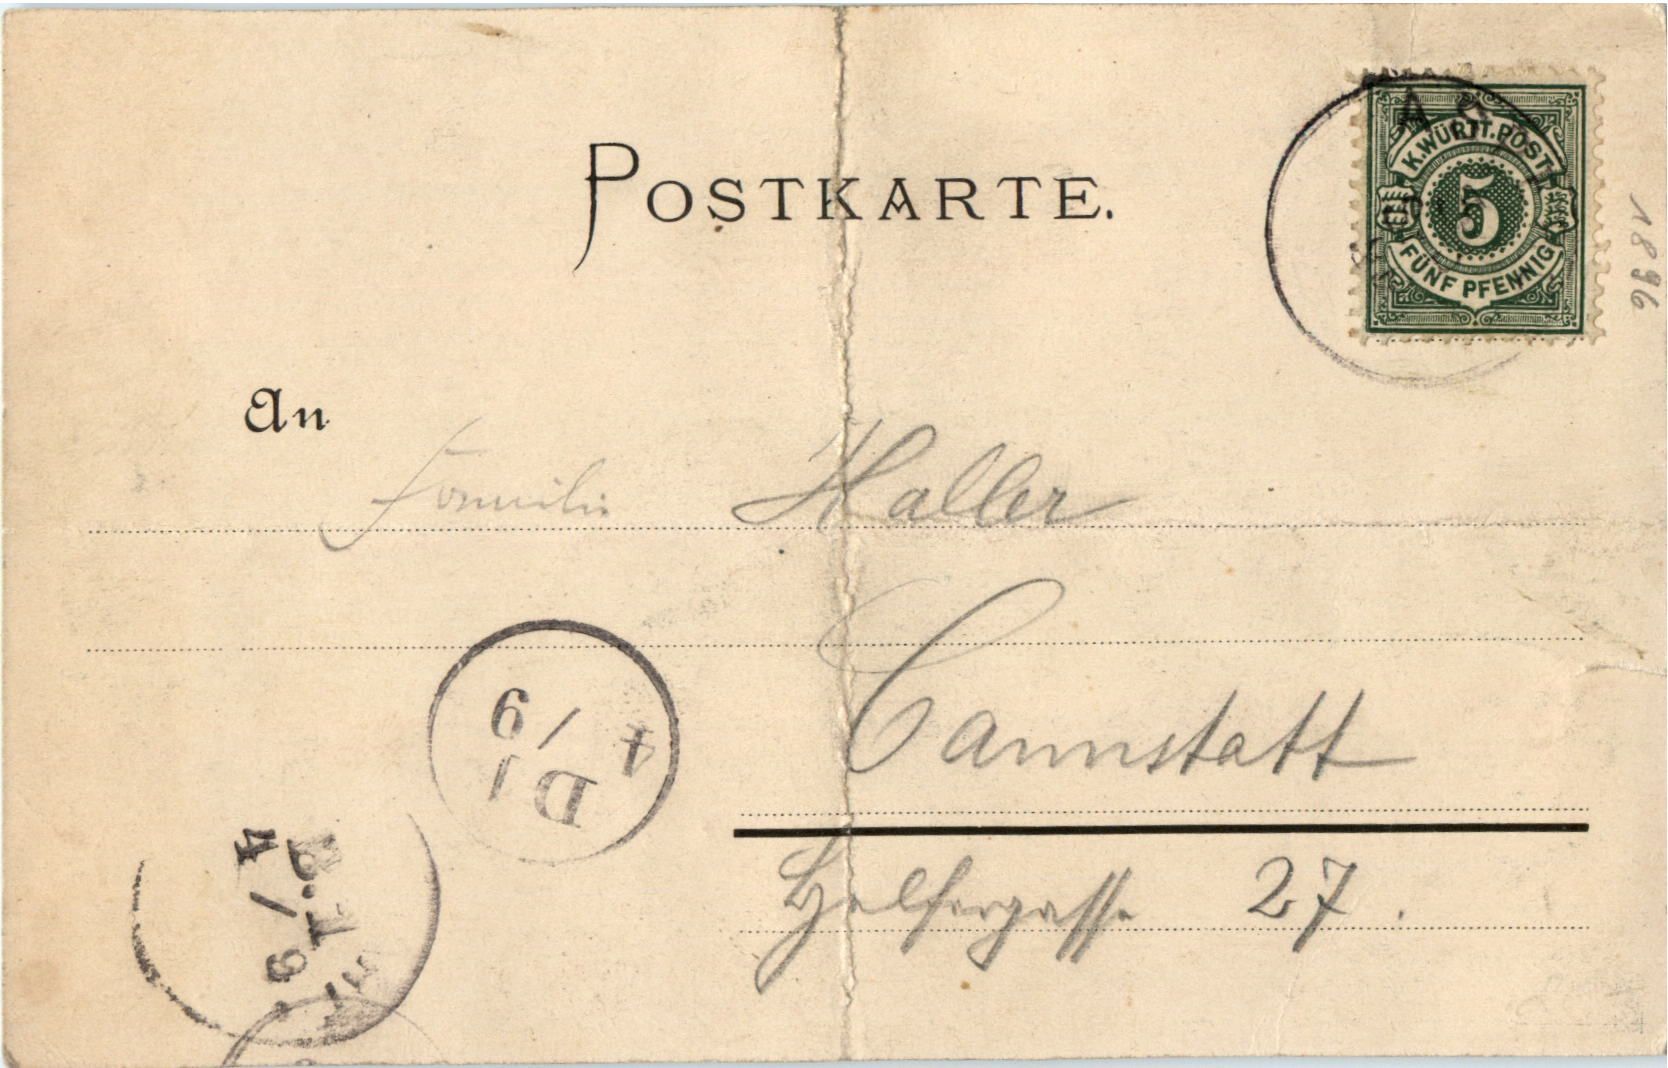 POSTKARTE.
K. WÜRTT. POST
5
FÜNF PFENNIG
1896
An
Familie Haller
Cannstatt
Helfergasse 27.
4/9
D1
4/9